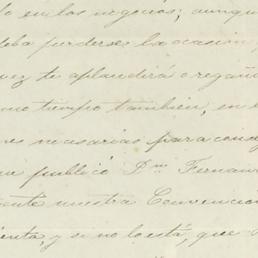 lo en los negocios; aunqu
deba perderse la ocasion,
vez te aplaudirá o regaña
mo tiempo tambien, en e
nes necesarias para conse
ue publicó Dⁿ Fernan
ente nuestra Convenció
ienta y si no lo está, que